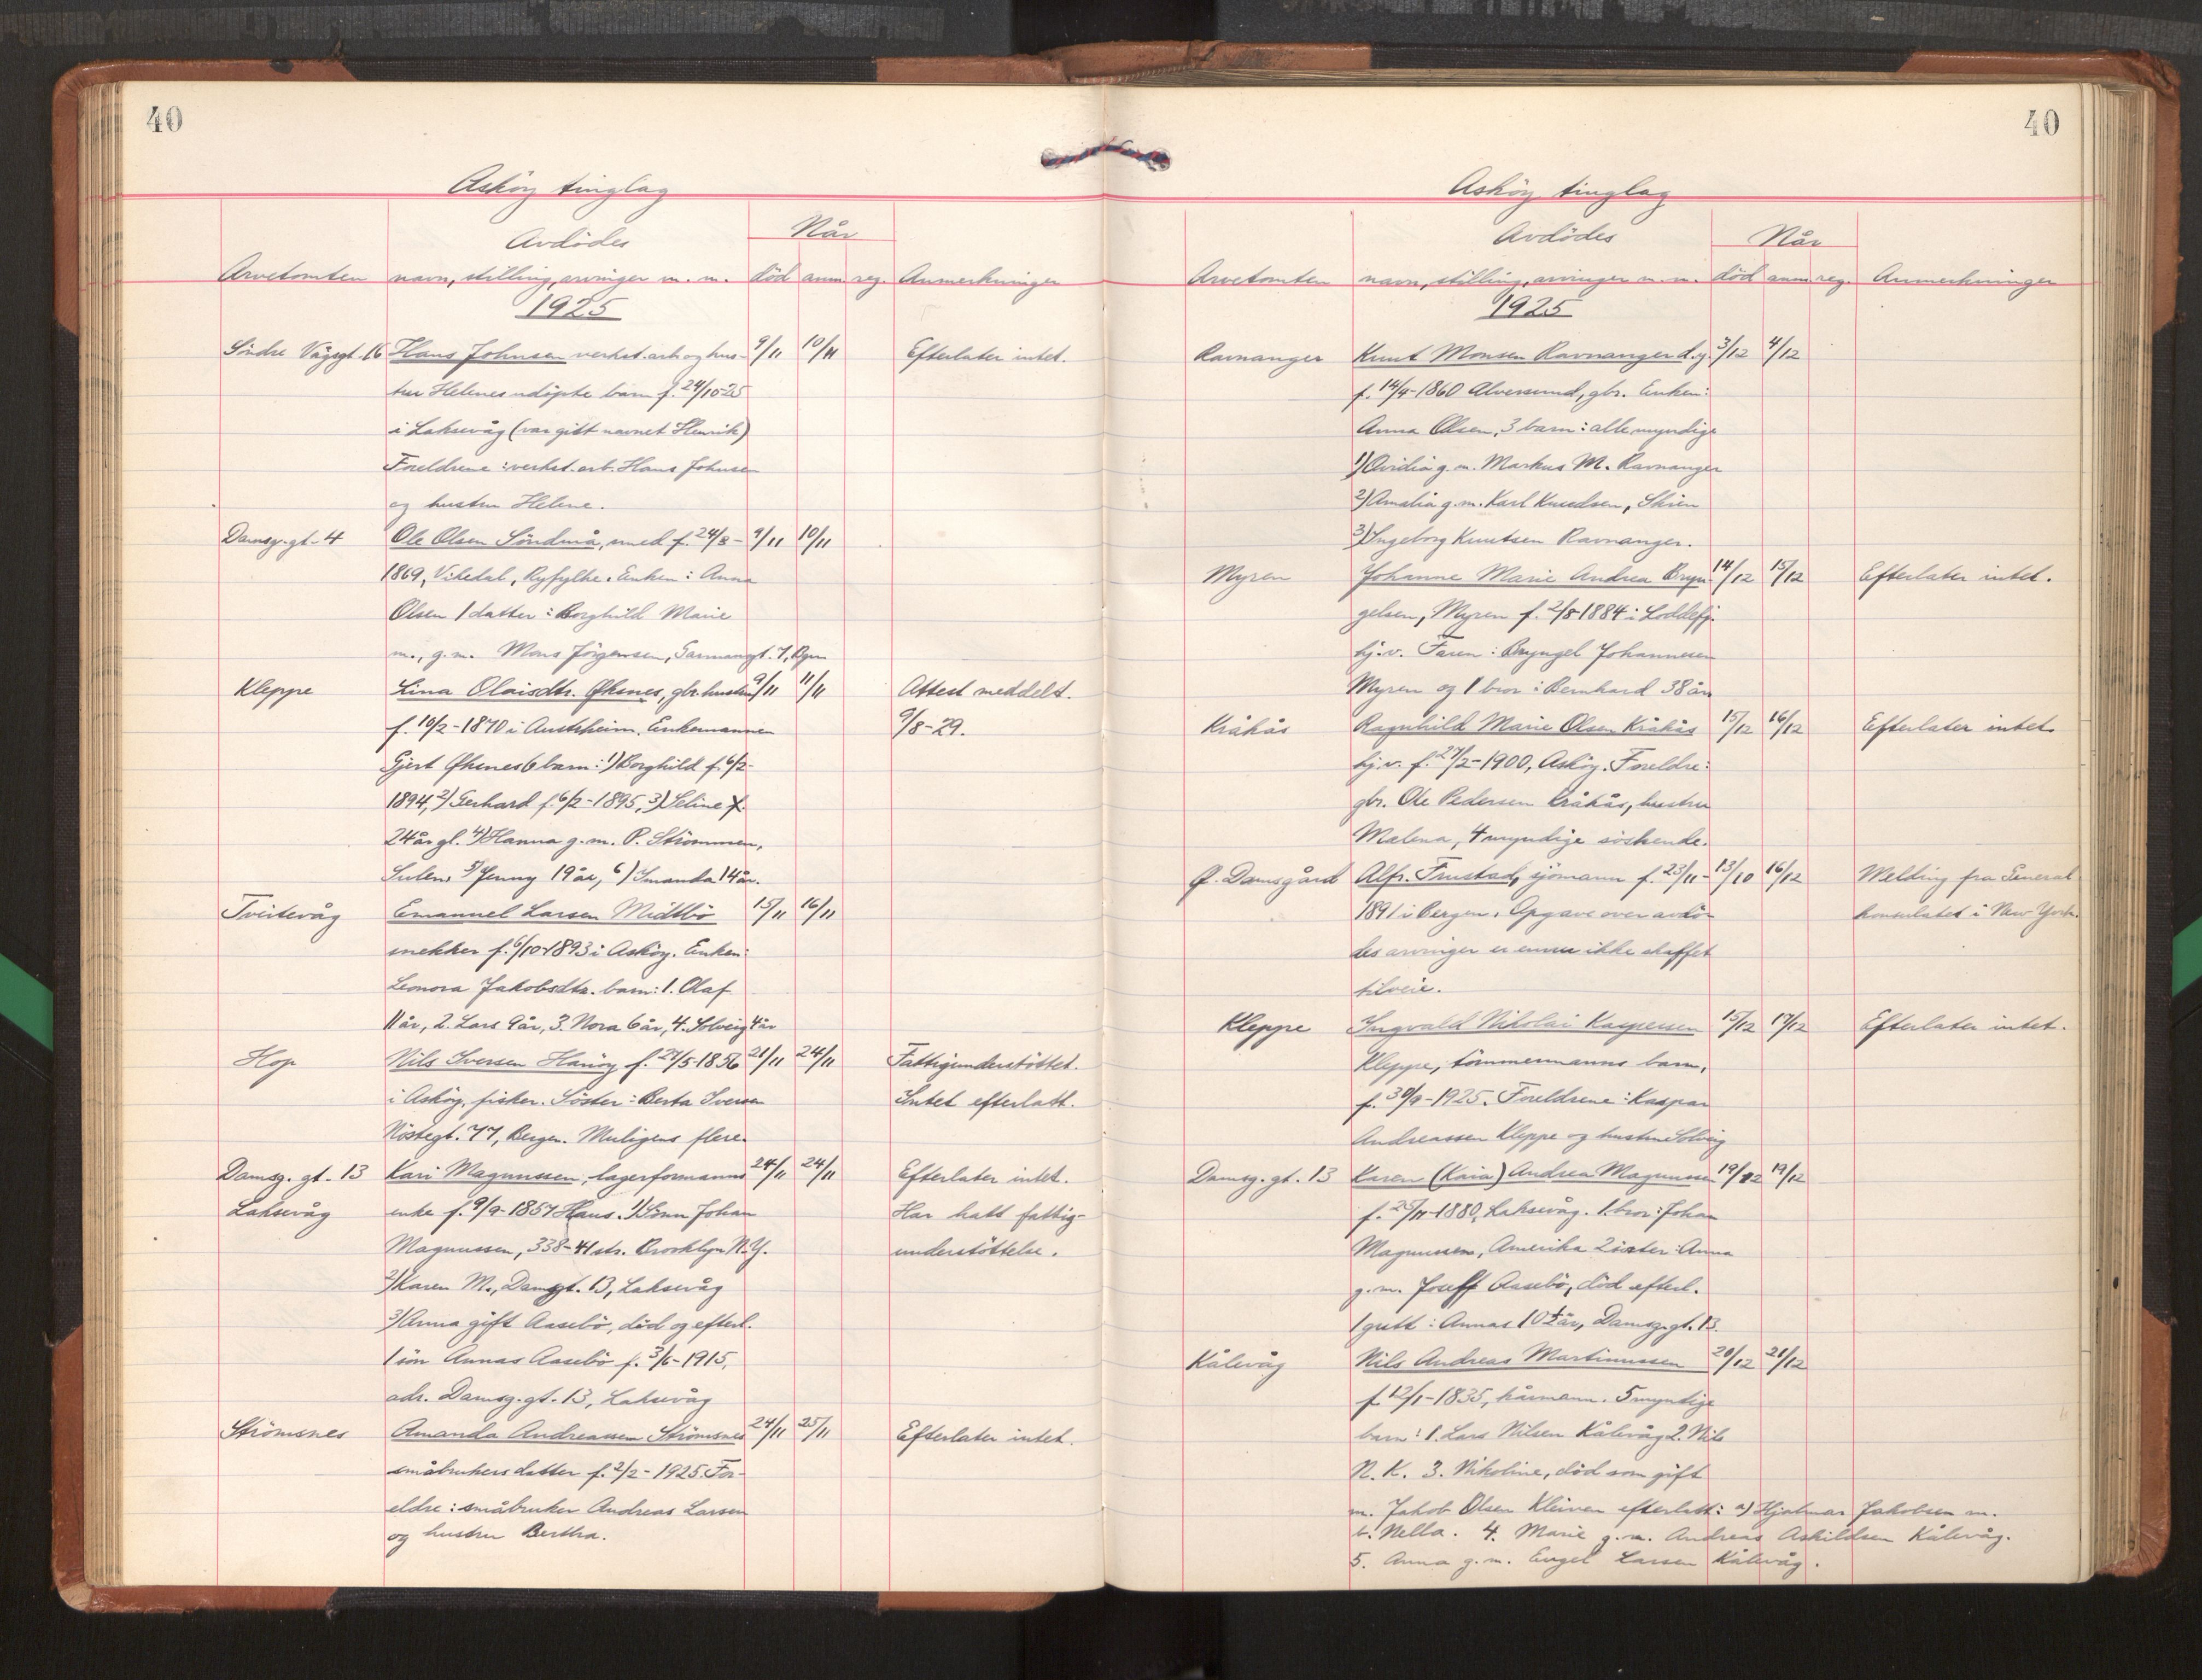 40
Asköy tinglag
Avdödes
Når
Arvetomten navn, stilling, arvinger m. m. död anm. reg. Anmerkninger
1925
Söndre Vågsgt. 16 Hans Johnsen verkst. arb. og hus- 9/11 10/11 Efterlater intet.
tru Helenes udöpte barn f. 24/10-25
i Laksevåg (var gitt navnet Henrik)
Foreldrene: verkst. arb. Hans Johnsen
og hustru Helene.
Damsg. gt. 4 Ole Olsen Söndmå, smed f. 24/8- 9/11 10/11
1869, Vikedal, Ryfylke. Enken: Anna
Olsen 1 datter: Borghild Marie
m., g.m. Mons Jörgensen, gt. 7, Bgn
Kleppe Lina Olaisdtr. Øksnes, gbr. hustru 9/11 11/11 Attest meddelt.
f. 10/2-1870 i Austrheim. Enkemannen 9/8-29.
Gjert Øksnes 6 barn: 1) Borghild f. 6/2-
1894, 2) Gerhard f. 6/2-1895, 3) Seline
24 år gl. 4) Hanna g.m. P. Strömmen,
Sulen. 5) Jenny 19 år, 6) Imanda 14 år.
Tveitevåg Emanuel Larsen Midtbö 15/11 16/11
snekker f. 6/10-1893 i Asköy. Enken:
Leonora Jakobsdtr. barn: 1. Olaf
11 år, 2. Lars 9 år, 3. Nora 6 år, 4. Solveig 4 år
Hop Nils Iversen Hanöy f. 27/5-1856 21/11 24/11 Fattigunderstöttet.
i Asköy, fisker. Söster: Berta Iversen Intet efterlatt.
Nöstegt. 77, Bergen. Muligens flere.
Damsg. gt. 13 Kari Magnussen, lagerformanns 24/11 24/11 Efterlater intet.
Laksevåg enke f. 9/9-1857 Haus. 1) Sönn Johan Har hatt fattig-
Magnussen, 338-41 str. Brooklyn N.Y. understöttelse.
2) Karen M., Damsgt. 13, Laksevåg
3) Anna gift Aasebö, död og efterl.
1 sön Annas Aasebö f. 3/6-1915,
adr. Damsg. gt. 13, Laksevåg
Strömsnes Amanda Andreassen Strömsnes 24/11 25/11 Efterlater intet.
småbrukers datter f. 2/2-1925. For-
eldre: småbruker Andreas Larsen
og hustru Bertha.
40
Asköy tinglag
Avdödes
Når
Arvetomten navn, stilling, arvinger m. m. död anm. reg. Anmerkninger
1925
Ravnanger Knut Monsen Ravnanger d.y. 3/12 4/12
f. 14/9-1860 Alversund, gbr. Enken:
Anna Olsen, 3 barn: alle myndige
1) Ovidia g.m. Markus M. Ravnanger
2) Amalia g.m. Karl Knudsen, Skien
3) Ingeborg Knutsen Ravnanger.
Myren Johanne Marie Andrea Bryn- 14/12 15/12 Efterlater intet.
gelsen, Myren f. 2/8-1884 i Loddefj.
hj.v. Faren: Bryngel Johannesen
Myren og 1 bror: Bernhard 38 år
Kråkås Ragnhild Marie Olsen Kråkås 15/12 16/12 Efterlater intet.
hj.v. f. 27/2-1900, Asköy. Foreldre:
gbr. Ole Pedersen Kråkås, hustru
Malena, 4 myndige söskende.
Q. Damsgård Alfr. Trustad, sjömann f. 23/11- 13/10 16/12 Melding fra General-
1891 i Bergen. Opgave over avdö- konsulatet i New York.
des arvinger er ennu ikke skaffet
tilveie.
Kleppe Ingvald Nikolai Kaspersen 15/12 17/12 Efterlater intet.
Kleppe, tömmermanns barn,
f. 30/9-1925. Foreldrene: Kaspar
Andreassen Kleppe og hustru Solveig
Damsg. gt. 13 Karen (Kaia) Andrea Magnussen 19/12 19/12
f. 25/11-1880, Laksevåg. 1. bror: Johan
Magnussen, Amerika 2 söster: Anna
g.m. Joseff Aasebö, död efterl.
1 gutt: Annas 10½ år, Damsg. gt. 13.
Kålevåg Nils Andreas Martinussen 20/12 21/12
f. 12/1-1835, kårmann. 5 myndige
barn: 1. Lars Nilsen Kålevåg 2. Nils
N. K. 3. Nikoline, död som gift
m. Jakob Olsen Kleiven efterlatt: a) Hjalmar Jakobsen m.
b. Nella. 4. Marie g.m. Andreas Askildsen Kålevåg.
5. Anna g.m. Engel Larsen Kålevåg.